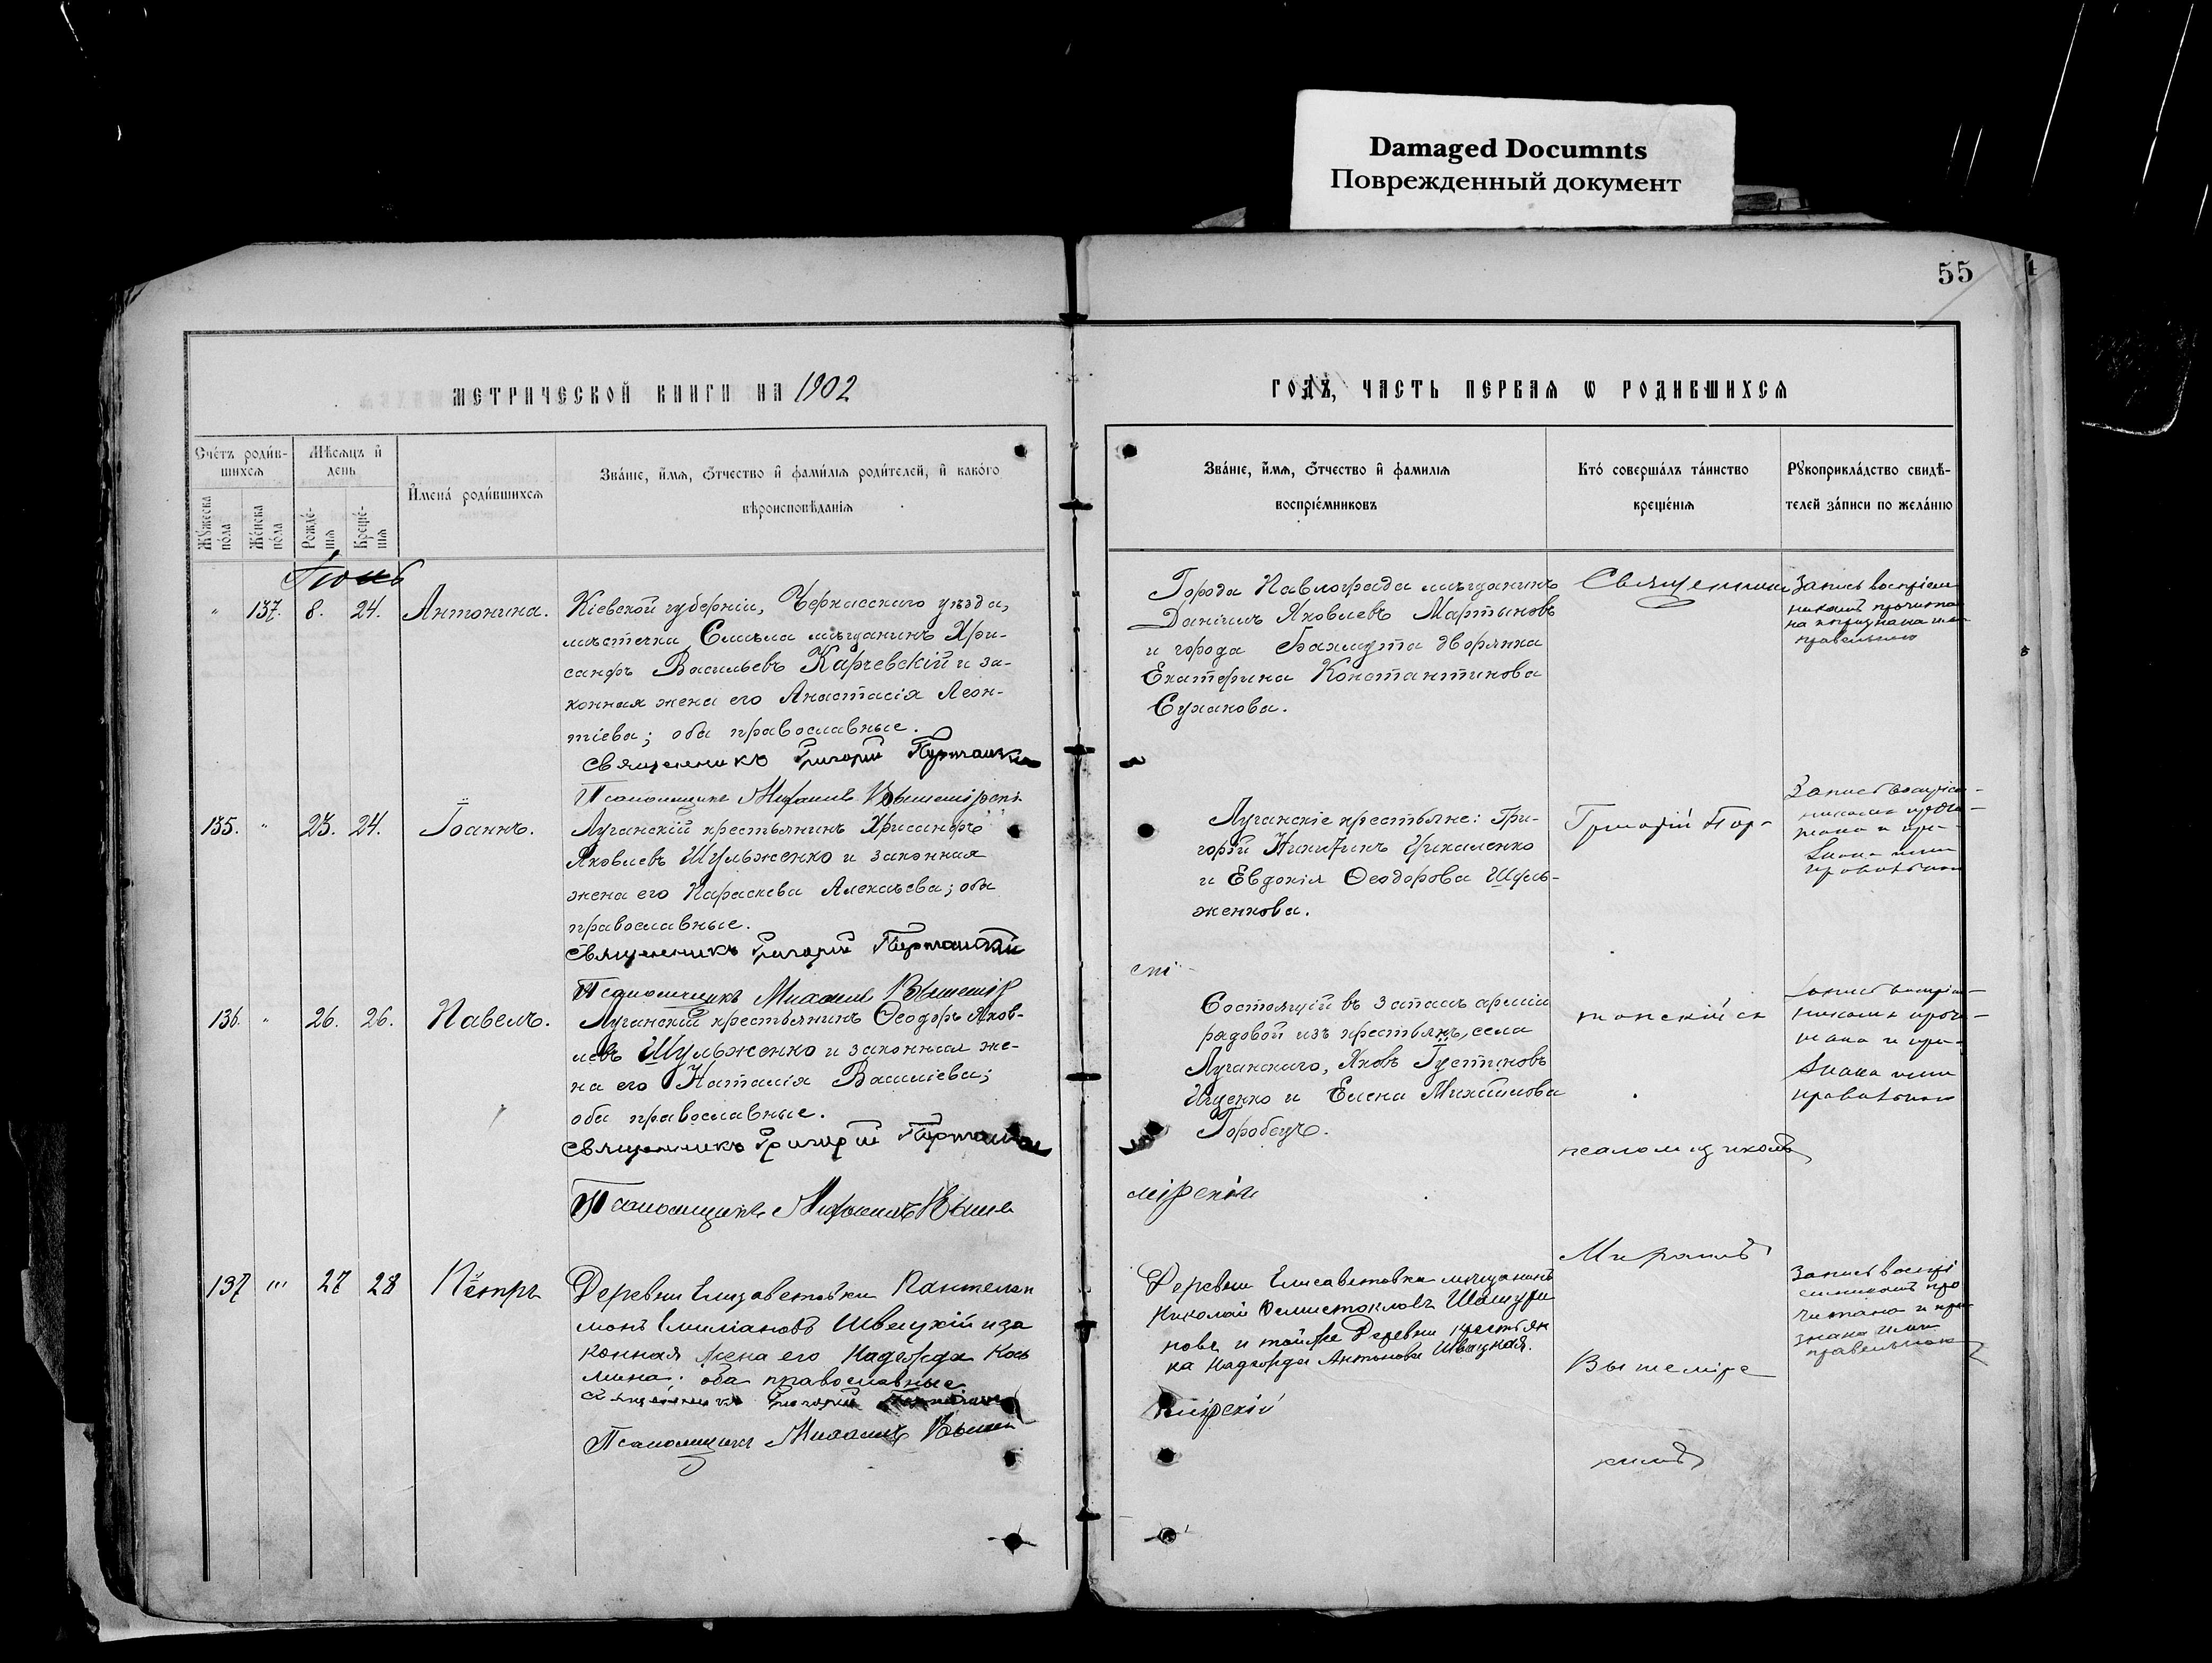 Damaged Documnts
Поврежденный документ
55
МЕТРИЧЕСКОЙ КНИГИ НА 1902
ГОДЪ, ЧАСТЬ ПЕРВАЯ Ѡ РОДИВШИХСЯ
Счетъ родив-
шихся
Мѣсяцъ и
день
Мужеска
пола
Женска
пола
Рожде-
нія
Креще-
нія
Имена родившихся
Званіе, имя, отчество и фамилія родителей, и какого
вѣроисповѣданія
Званіе, имя, отчество и фамилія
воспріемниковъ
Кто совершалъ таинство
крещенія
Рукоприкладство свидѣ-
телей записи по желанію
Іюнь
" 137. 8. 24. Антонина.
Кіевской губерніи, Черкасскаго уѣзда,
мѣстечка Смѣла мѣщанинъ Хри-
санфъ Васильевъ Карчевскій и за-
конная жена его Анастасія Леон-
тіева; оба православные.
Священникъ Григорій
Псаломщикъ Михаилъ Вышемірскі
Города Павлограда мѣщанинъ
Даніилъ Яковлевъ Мартыновъ
и города Бахмута дворянка
Екатерина Константинова
Суханова.
Священник
Запись воспріем
никамъ прочита
на и признана ими
правельною
135. " 23. 24. Іоаннъ.
Луганскій крестьянинъ Хрисанфъ
Яковлевъ Шульженко и законная
жена его Параскева Алексѣева; оба
православные.
Священникъ Григорій
Псаломщикъ Михаилъ Вышемір
Луганскіе крестьяне: Гри-
горій Никитинъ Цикаленко
и Евдокія Ѳеодорова Шуль-
женкова.
скі
Григорій Пор-
Запись воспріем-
никамъ прочи-
тана и при-
знана ими
правельною
136. " 26. 26. Павелъ.
Луганскій крестьянинъ Ѳеодоръ Яков-
левъ Шульженко и законная же-
на его Наталія Василіева;
оба православные.
Священникъ Григорій
Псаломщикъ Михаилъ Выше
Состоящій въ запасѣ арміи
рядовой изъ крестьянъ, села
Луганскаго, Яковъ Іустиновъ
Ищенко и Елена Михайлова
Горобецъ.
мірскій
танскій съ
псаломщикомъ
Запись воспріем-
никамъ прочи-
тана и при-
знана ими
правельною
137 " 27 28 Пётръ
Деревни Елизаветовки Пантелеи
монъ Емиліановъ Швецкій и за
конная жена его Надежда Кось
мина: оба православные
Священникъ Григорій
Псаломщикъ Михаилъ Выше
Деревни Елисаветовки мѣщанинъ
Николай Ѳемистокловъ Шашури
новъ и той же Деревни крестьян
ка Надежда Антонова Швецкая.
мірскій
Михаилъ
Вышемірс
кимъ
Запись воспрі
емникамъ про
читана и при
знана ими
правельною